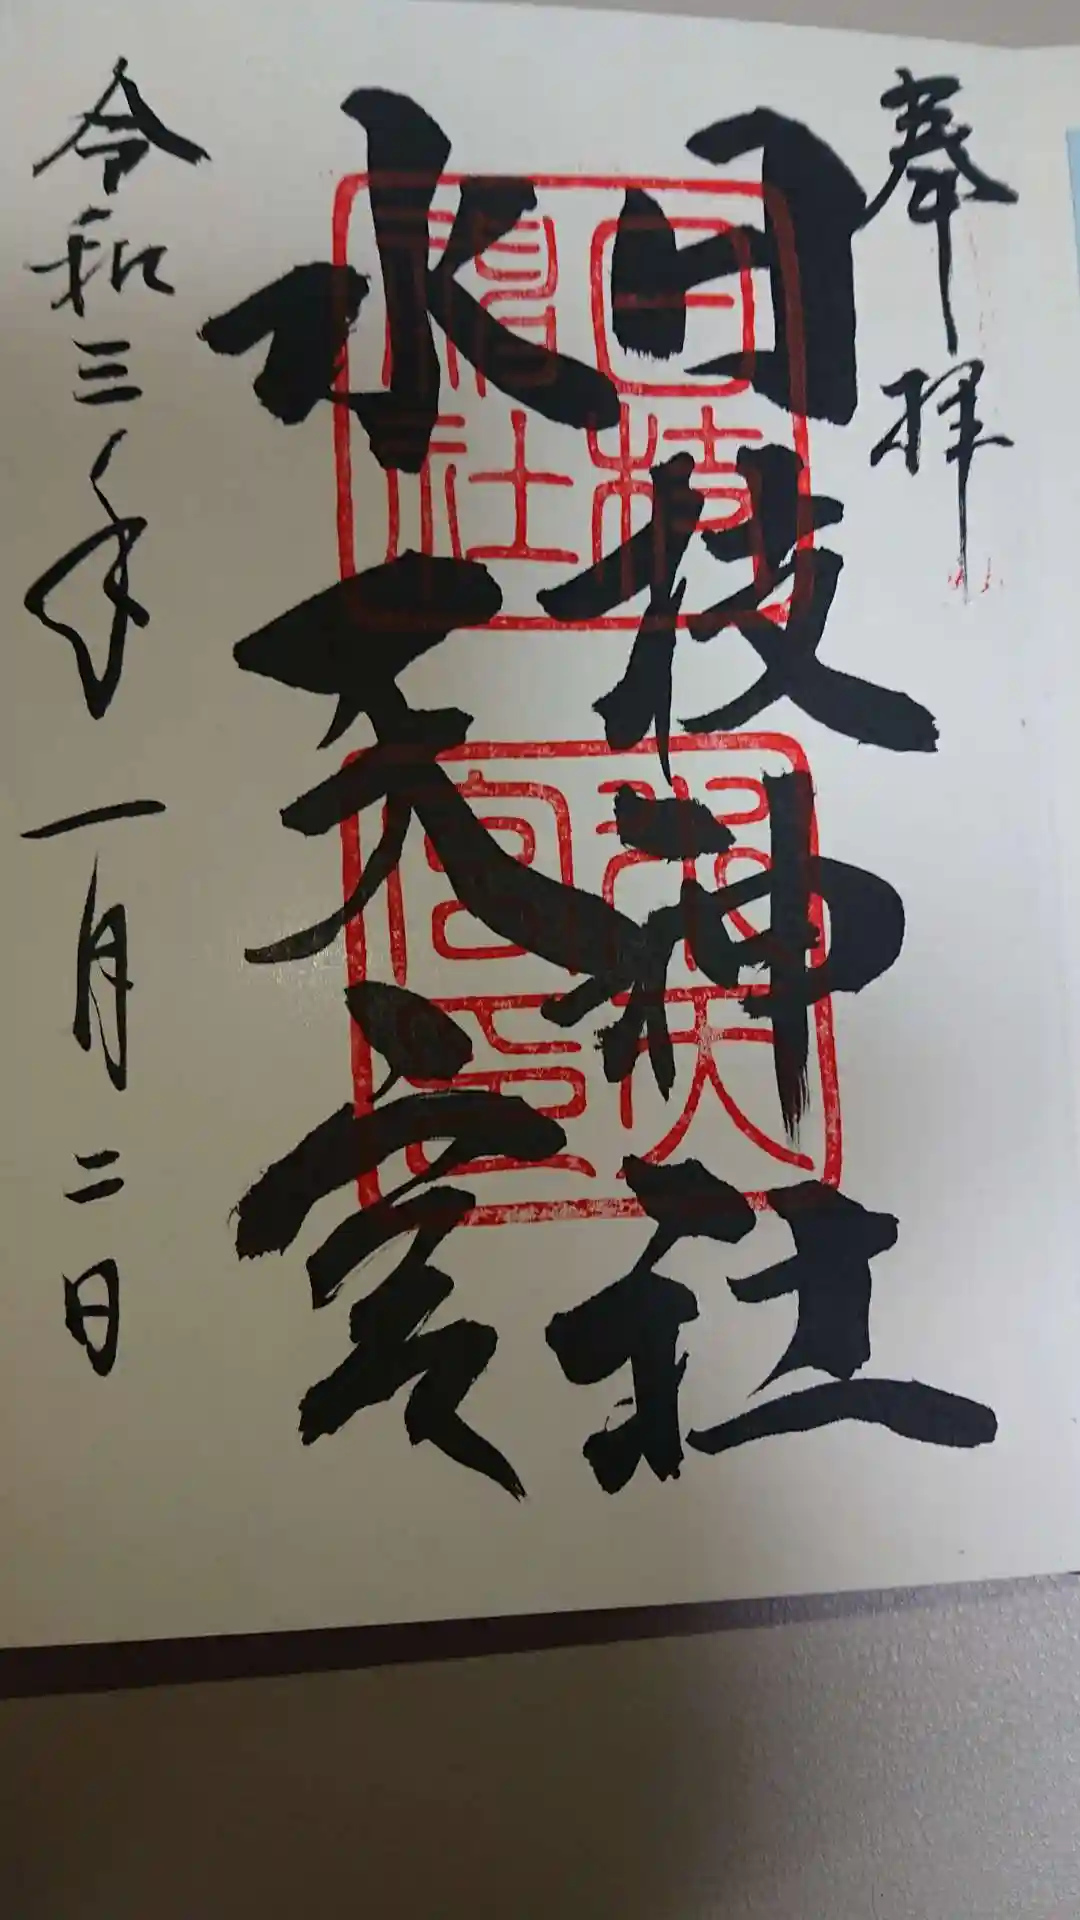 奉拝
日枝神社
水天宮
令和三年一月二日
日枝
神社
水天
宮印